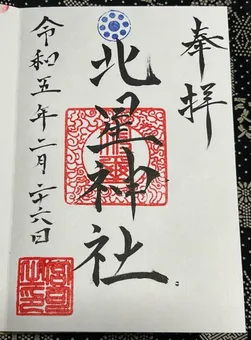 奉拝
北星神社
令和五年二月二十六日
宮司之印